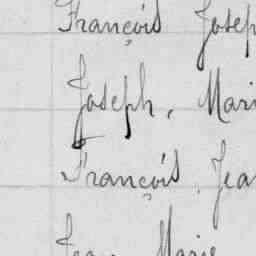 François Josep
Joseph, Mari
François, Jea
Jean Marie